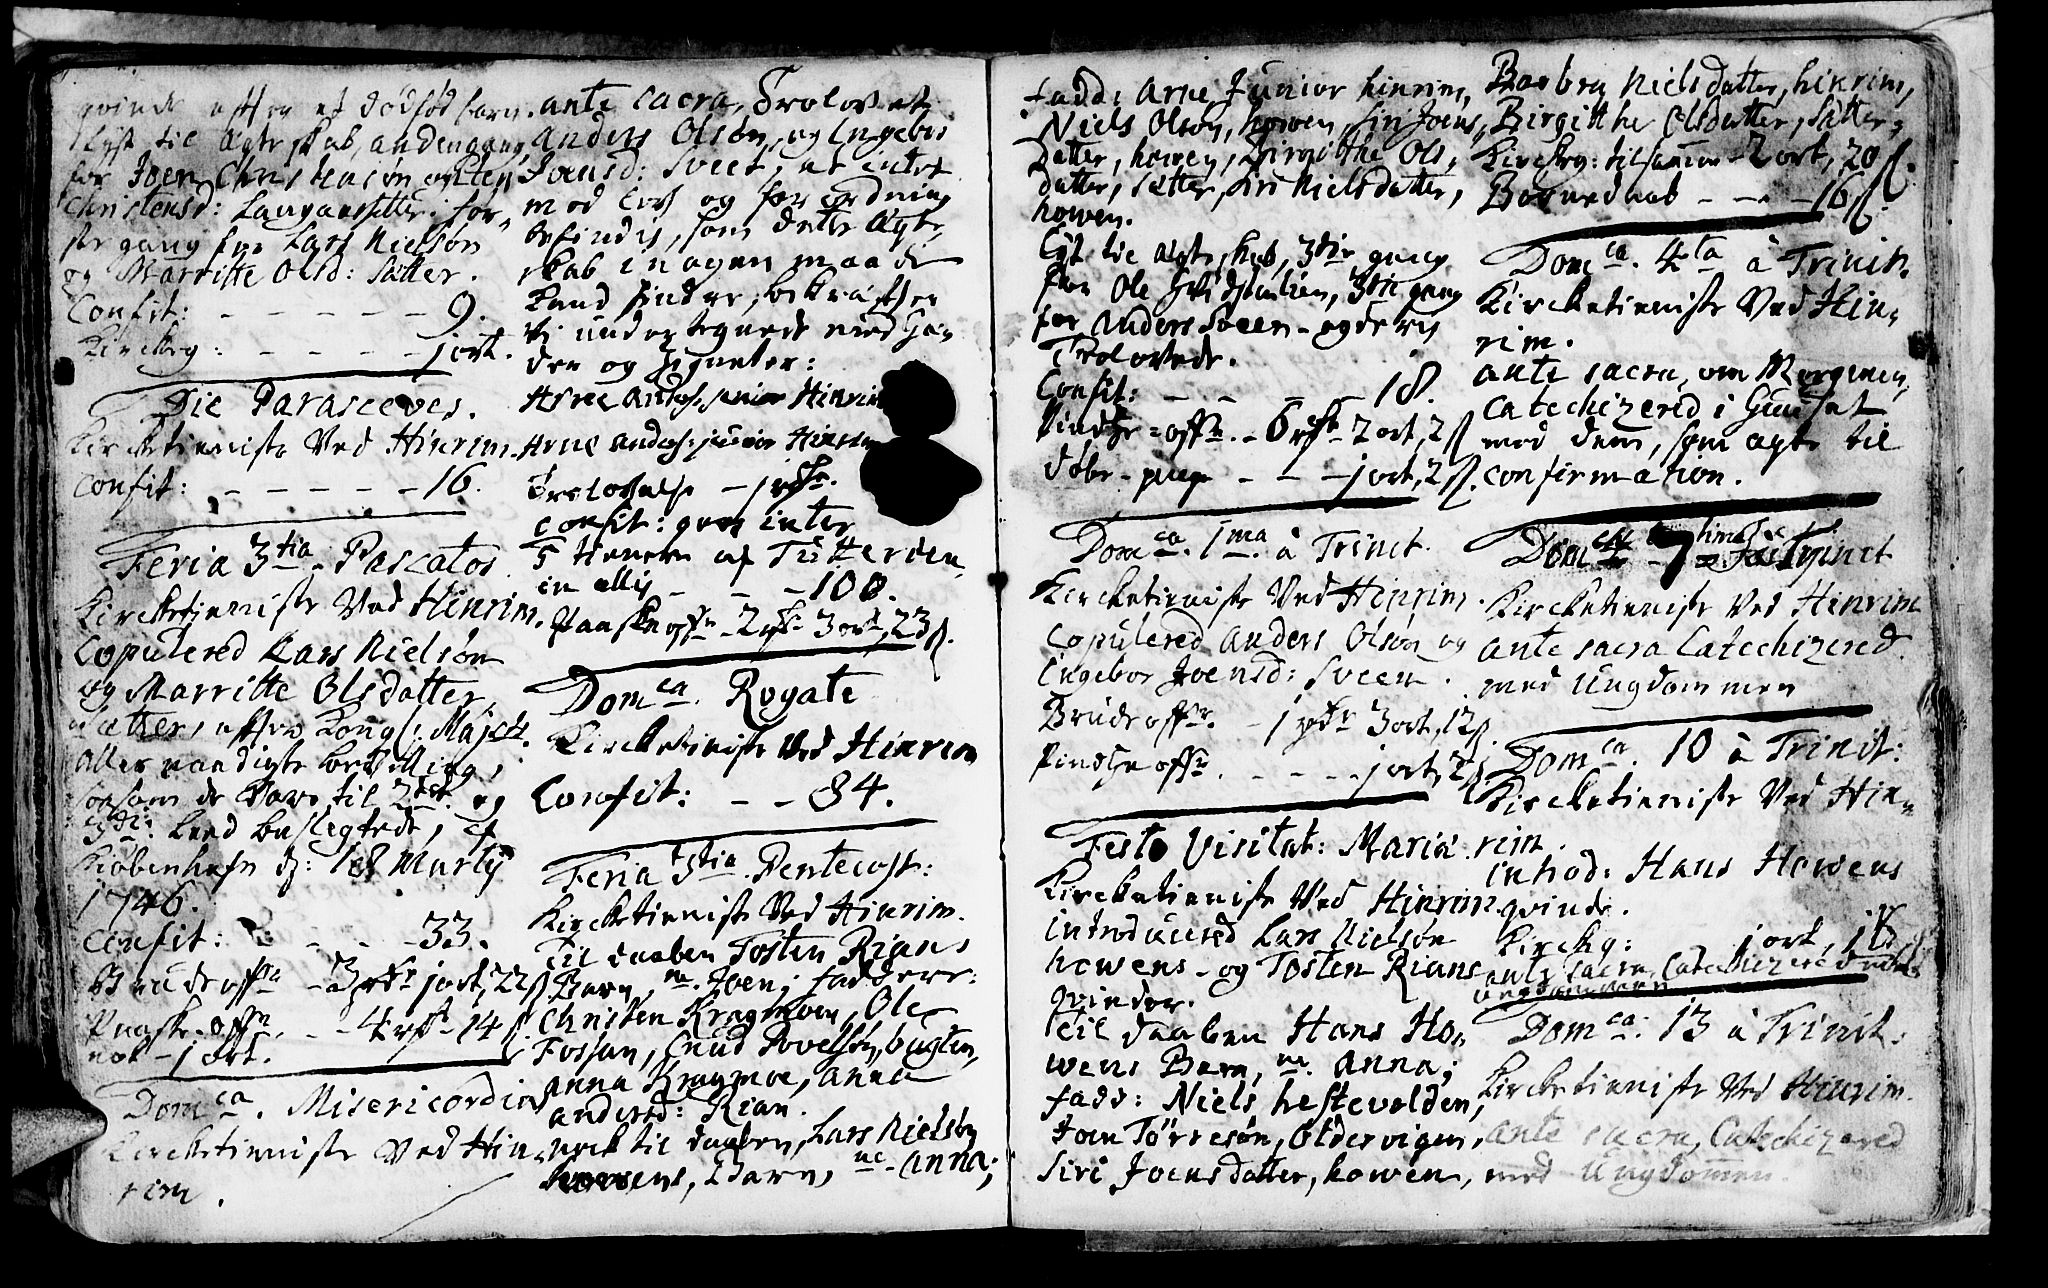 qvinde efter et dødfød barn.
Lyst til Ægteskab, anden gang
for Joen Christensøn og
Christensd: Langaassetter; før-
ste gang for Lars Nielsøn
og Marritte Olsd: Sætter.
Confit: - - - - - 9.
Kirckeg: - - - - - 1 ort.
Die Parasceves.
Kircketienniste Ved Hinrim.
Confit: - - - - - 16.
Feria 3tia Pascatos
Kircketienniste Ved Hinrim.
Copulered Lars Nielsøn
og Marritte Olsdatter
Sætter, efter Kongl: Majsts.
aller naadigste bevilling,
saasom de Vare til 2det og
3die Leed beslegtede, af
Kiøbenhafn d: 18 Martij
1746.
Confit: - - - 33.
Brude offer - 3 rdr 1 ort, 22 s
Paaske-offer. - - 4 rdr 14 s
nok - 1 ort.
Domca. Misericordias
Kircketienniste Ved Hin-
rim.
ante sacra, Trolovet
Anders Olsøn, og Ingebor
Joensd: Sveet, at intet
mod Lov og forordning
befindes, som dette Ægte-
skab i nogen maade
kand hindre, bekræfter
vi undertegnede med Hæn-
der og Signeter:
Arne Anders: senior Hinrim
Arne Anders: junior Hinrim
Trolovelse - 1 rdr.
Confit: qvos inter
5 tienere af Tutterøen
in allis - - - 100.
Paaske offer - 2 rdr 3 ort, 23 s.
Domca. Rogate
Kircketieniste Ved Hinrim
Confit: - - 84.
Feria 3tia Pentecost:
Kircketienniste Ved Hinrim.
Til daaben Tosten Rians
Barn, ne. Joen; faddere:
Christen Kragmoen, Ole
Fossan, Cnud Povelsøn, bugten,
Anna Kragmoe, Anna
Andersd: Rian.
nock til daaben, Lars Nielsøn
howens, Barn, ne. Anna;
fadd: Arne Junior hinrim,
Niels Olsøn, howen, Siri Joens-
datter, howen, Birgitthe Ols-
datter, Sætter, Siri Nielsdatter,
howen.
Lyst til Ægteskab, 3die gang
for Ole, 3die gang
for Anders Sveen - og deres
Trolovede.
Confit: - - - - - 18.
Pindse-offer. - 6 rdr 2 ort, 2 s
døbe-penge - - - 1 ort, 2 s.
Domca. 1ma. à Trinit.
Kircketienniste Ved Hinrim.
Copulered Anders Olsøn og
Ingebor Joensd: Sveen.
Brude offer. - 1 rdr 3 ort, 12 s.
Pindse offer. - - - - 1 ort, 2 s
Festo Visitat: Mariæ.
Kircketienniste Ved Hinrim
introducered Lars Nielsøn
howens - og Tosten Rians
qvinder.
til daaben Hans Ho-
wens Barn, ne. Anna;
fadd: Niels hestevolden,
Joen Tørresøn, Oldervigen,
Siri Joensdatter, howen,
Barbra Nielsdatter, hinrim,
Birgitthe Olsdatter, Sætter,
Kirckeg: tilsammen - 2 ort, 20 s.
Barnedaab - - - 16 s.
Domca. 4ta à Trinit.
Kircketienniste Ved Hin-
rim.
ante sacra, om Morgenen,
Catechizered i Huuset
med dem, som agte til
confirmation.
Domca 7tima à Trinit
Kircketienniste Ved Hinrim
ante sacra Catechizered.
med Ungdommen
Domca. 10 à Trinit:
Kircketienniste Ved Hin-
rim.
introd: Hans Howens
qvinde.
Kirckeg: 1 ort,
ante sacra, Catechizered med
ungdommen
Domca. 13 à Trinit:
Kircketienniste Ved Hinrim.
ante sacra, Catechizered
med Ungdommen.